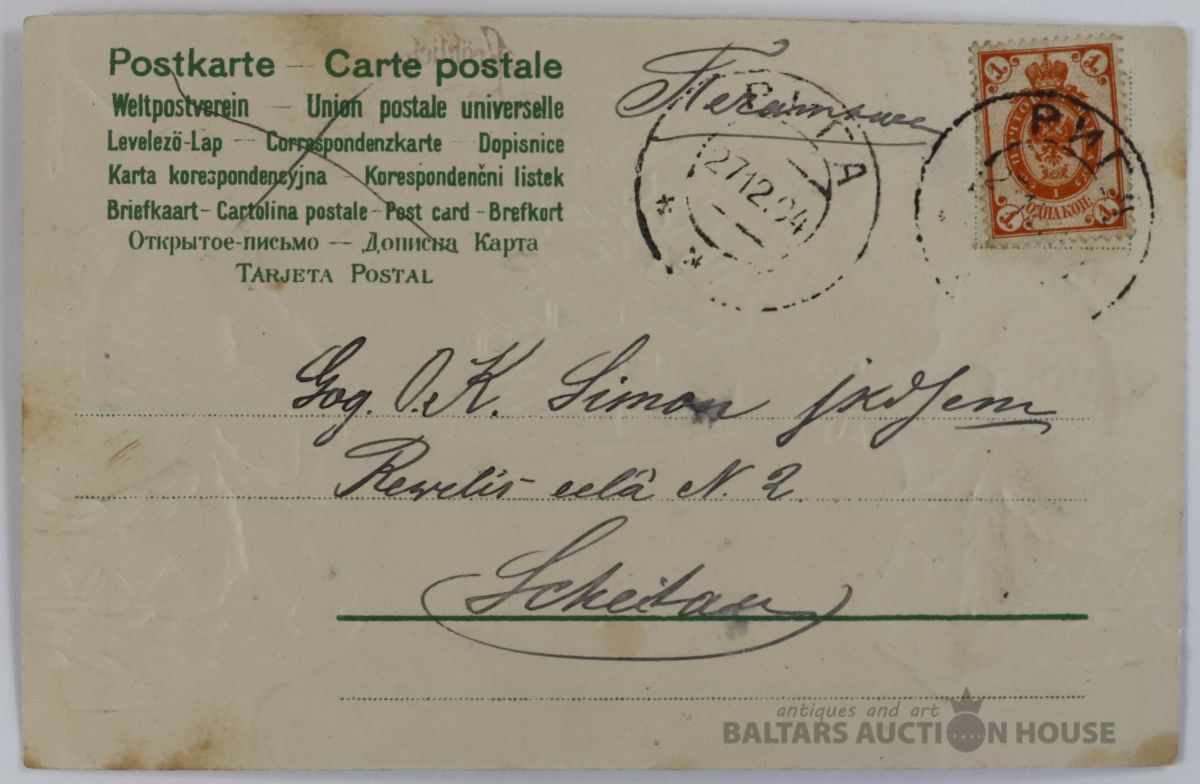 Postkarte – Carte postale
Weltpostverein – Union postale universelle
Levelező-Lap – Correspondenzkarte – Dopisnice
Karta korespondencyjna – Korespondenčni listek
Briefkaart – Cartolina postale – Post card – Brefkort
Открытое-письмо – Дописна Карта
Tarjeta Postal
1 1
ОДНА КОП.
1 1
РИГА
27 12.04
РИГА
God. O. K. Simon
Rewelis eelâ N. 2.
Scheitan
antiques and art
BALTARS AUCTION HOUSE